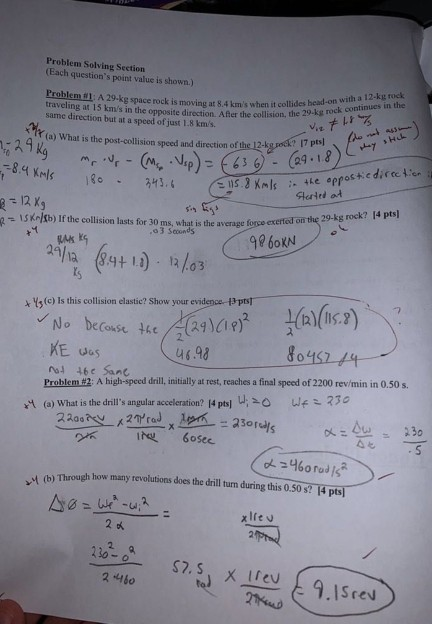 Problem Solving Section
(Each question's point value is shown.)
Problem #1: A 29-kg space rock is moving at 8.4 km/s when it collides head-on with a 12-kg rock
traveling at 15 km/s in the opposite direction. After the collision, the 29-kg rock continues in the
same direction but at a speed of just 1.8 km/s.
(a) What is the post-collision speed and direction of the 12-kg rock? [7 pts]
(do not assume
they stick)
29 kg
8.4 km/s
180 - 243.6
(-63.6) - (29·1.8)
= 115.8 km/s in the oppostiedirection
started at
R = 12 kg
R = 15 km/s
sig figs
(b) If the collision lasts for 30 ms, what is the average force exerted on the 29-kg rock? [4 pts]
.03 seconds
9860KN
ok
29/12 (8.4+1.8) - 12/.03
kg
(c) Is this collision elastic? Show your evidence. [3 pts]
No because the
KE was
not the same
1/2(29)(1.8)²
46.98
1/2(12)(115.8)
80457.84
?
Problem #2: A high-speed drill, initially at rest, reaches a final speed of 2200 rev/min in 0.50 s.
(a) What is the drill's angular acceleration? [4 pts] Wi=0 Wf = 230
2200rev x 2πrad x 1min = 230rad/s
min 1rev 60sec
α = Δω = 230
Δt .5
α=460rad/s²
(b) Through how many revolutions does the drill turn during this 0.50 s? [4 pts]
Δθ = Wf² - Wi² =
2α
x1rev
2πrad
230² - 0²
2·460
57.5 rad x 1rev = 9.15rev
2πrad